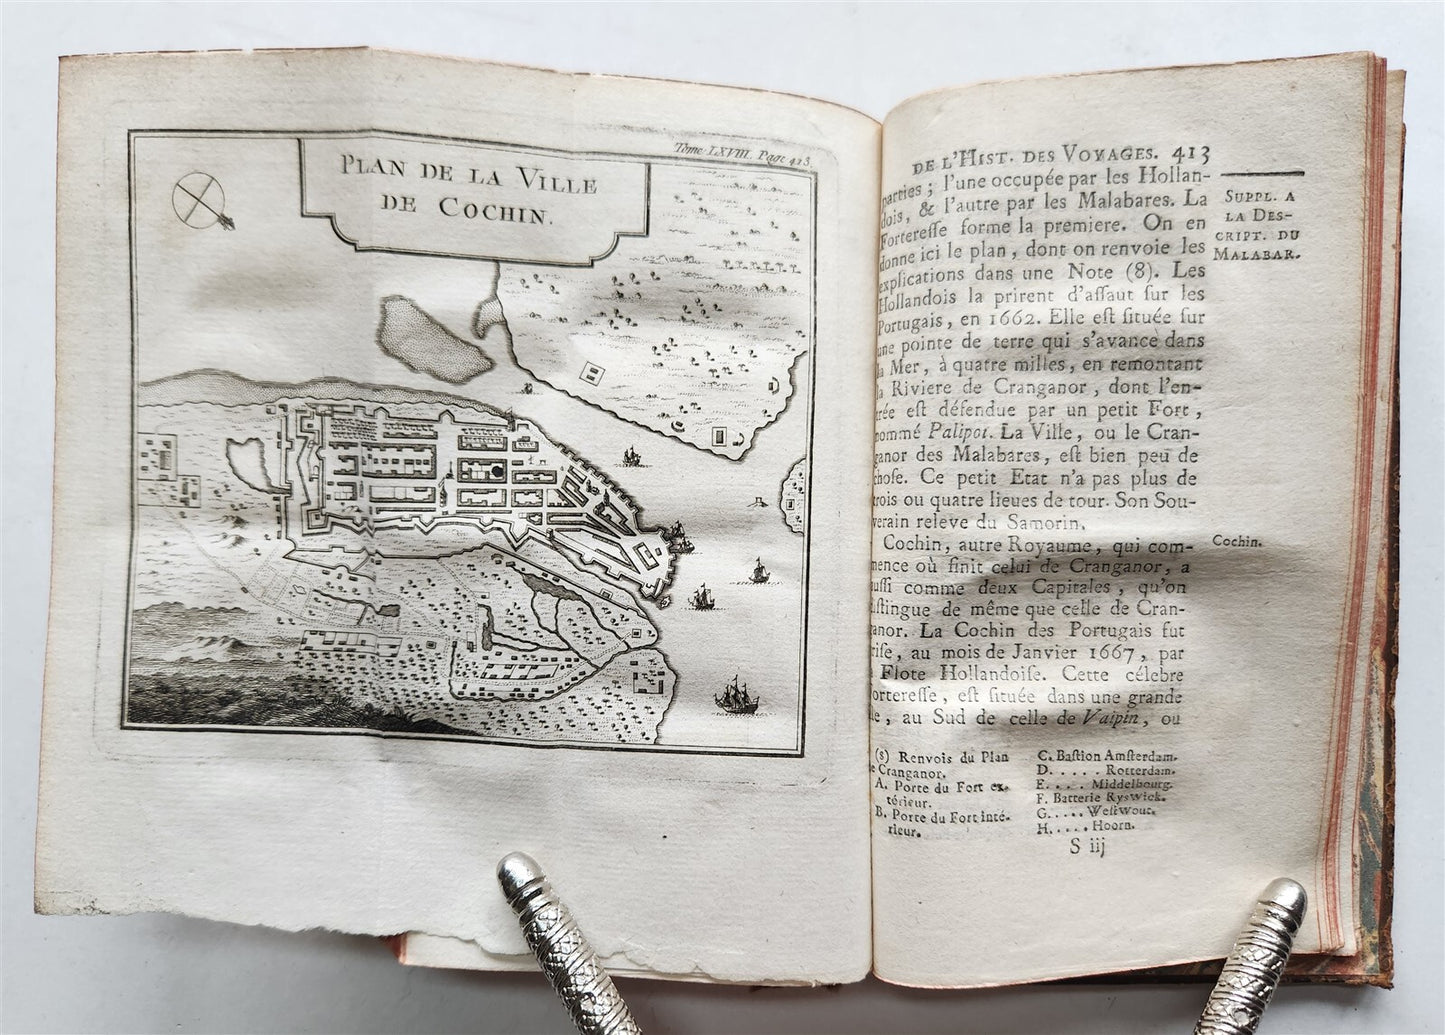 Tome LXVIII. Page 413.
PLAN DE LA VILLE
DE COCHIN.
DE L'HIST. DES VOYAGES. 413
parties ; l'une occupée par les Hollan-
dois, & l'autre par les Malabares. La
Forteresse forme la premiere. On en
donne ici le plan, dont on renvoie les
explications dans une Note (8). Les
Hollandois la prirent d'assaut sur les
Portugais, en 1662. Elle est située sur
une pointe de terre qui s'avance dans
la Mer, à quatre milles, en remontant
la Riviere de Cranganor, dont l'en-
trée est défendue par un petit Fort,
nommé Palipot. La Ville, ou le Cran-
ganor des Malabares, est bien peu de
chose. Ce petit Etat n'a pas plus de
trois ou quatre lieues de tour. Son Sou-
verain releve du Samorin.
Cochin, autre Royaume, qui com-
mence où finit celui de Cranganor, a
aussi comme deux Capitales, qu'on
distingue de même que celle de Cran-
ganor. La Cochin des Portugais fut
prise, au mois de Janvier 1667, par
Flote Hollandoise. Cette célebre
Forteresse, est située dans une grande
, au Sud de celle de Vaipin, ou
SUPPL. A
LA DES-
CRIPT. DU
MALABAR.
Cochin.
(8) Renvois du Plan
de Cranganor.
A. Porte du Fort ex-
térieur.
B. Porte du Fort inté-
rieur.
C. Bastion Amsterdam.
D. . . . . Rotterdam.
E. . . . Middelbourg.
F. Batterie Ryswick.
G. . . . . Westwout.
H. . . . . Hoorn.
S iij